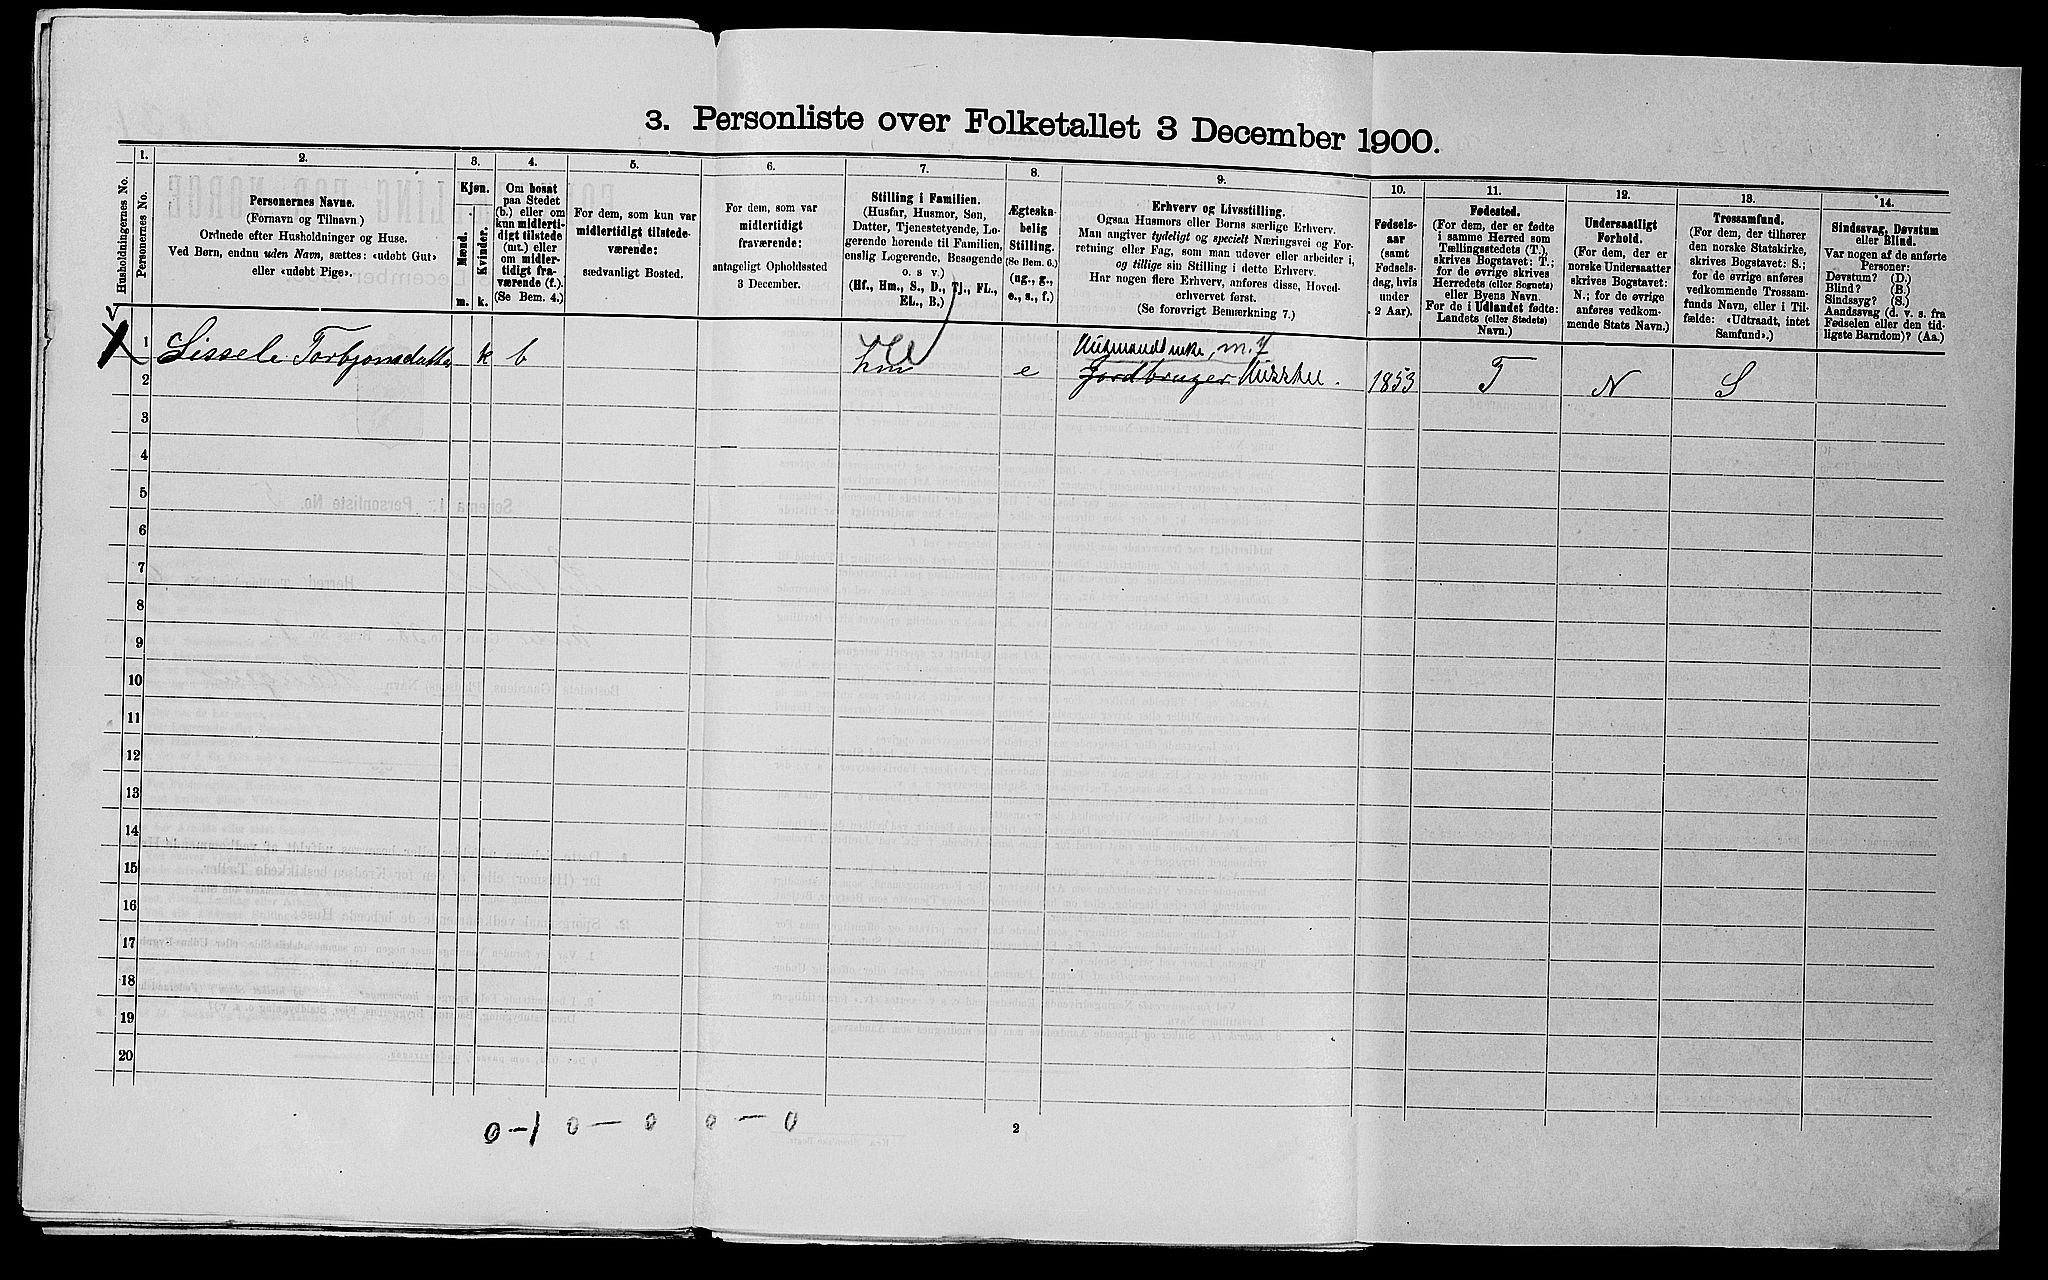 3. Personliste over Folketallet 3 December 1900.
Husholdningernes No.
1.
Personernes No.
2.
Personernes Navne.
(Fornavn og Tilnavn.)
Ordnede efter Husholdninger og Huse.
Ved Børn, endnu uden Navn, sættes: «udøbt Gut»
eller «udøbt Pige».
3.
Kjøn.
Mænd.
Kvinder.
m.
k.
4.
Om bosat
paa Stedet
(b.) eller om
kun midlerti-
digt tilstede
(mt.) eller
om midler-
tidigt fra-
værende (f.).
(Se Bem. 4.)
5.
For dem, som kun var
midlertidigt tilstede-
værende:
sædvanligt Bosted.
6.
For dem, som var
midlertidigt
fraværende:
antageligt Opholdssted
3 December.
7.
Stilling i Familien.
(Husfar, Husmor, Søn,
Datter, Tjenestetyende, Lo-
gerende hørende til Familien,
enslig Logerende, Besøgende
o. s v.)
(Hf., Hm., S., D., Tj., FL.,
EL., B.)
8.
Ægteska-
belig
Stilling.
(Se Bem. 6.)
(ug., g.,
e., s., f.)
9.
Erhverv og Livsstilling.
Ogsaa Husmors eller Børns særlige Erhverv.
Man angiver tydeligt og specielt Næringsvei og For-
retning eller Fag, som man udøver eller arbeider i,
og tillige sin Stilling i dette Erhverv.
Har nogen flere Erhverv, anføres disse, Hoved-
erhvervet først.
(Se forøvrigt Bemærkning 7.)
10.
Fødsels-
aar
(samt
Fødsels-
dag, hvis
under
2 Aar).
11.
Fødested.
(For dem, der er fødte
i samme Herred som
Tællingsstedets (T.),
skrives Bogstavet: T.;
for de øvrige skrives
Herredets (eller Sognets)
eller Byens Navn.
For de i Udlandet fødte:
Landets (eller Stedets)
Navn.)
12.
Undersaatligt
Forhold.
(For dem, der er
norske Undersaatter
skrives Bogstavet:
N.; for de øvrige
anføres vedkom-
mende Stats Navn.)
13.
Trossamfund.
(For dem, der tilhører
den norske Statskirke,
skrives Bogstavet: S.;
for de øvrige anføres
vedkommende Trossam-
funds Navn, eller i Til-
fælde: «Udtraadt, intet
Samfund».)
14.
Sindssvag, Døvstum
eller Blind.
Var nogen af de anførte
Personer:
Døvstum? (D.)
Blind? (B.)
Sindssyg? (S.)
Aandssvag (d. v. s. fra
Fødselen eller den tid-
ligste Barndom)? (Aa.)
1 Sissele Torbjønsdatter k b hm e Jordbruger 1853 T N S
2
3
4
5
6
7
8
9
10
11
12
13
14
15
16
17
18
19
20
0-1 0 – 0 0 – 0
2